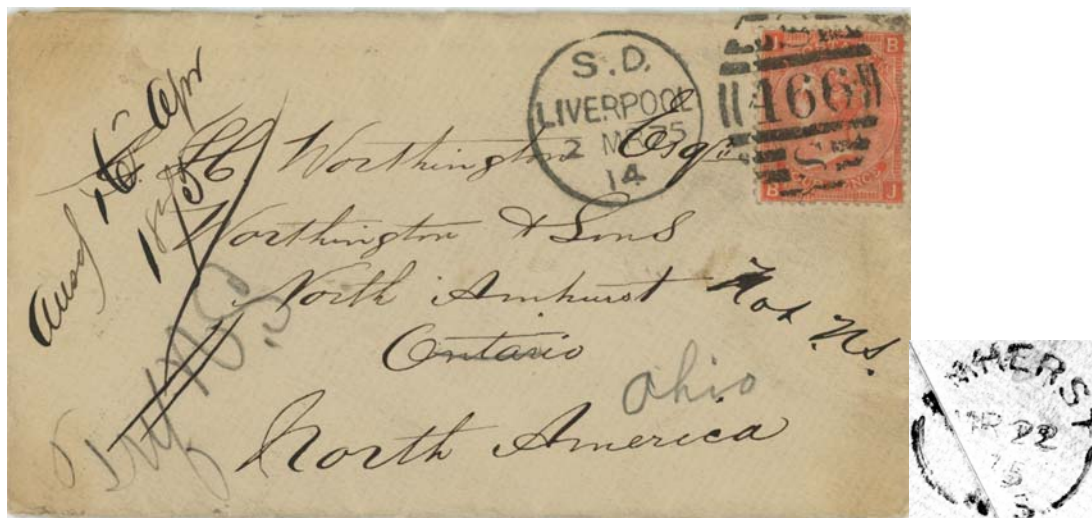 S.D.
LIVERPOOL
2 MR 75
14
466
J B
B J
Ansd 16 Apr
1875
H Worthington Esq
Worthington & Sons
North Amhurst
Not N.S.
Ontario
Ohio
North America
Try N.S.